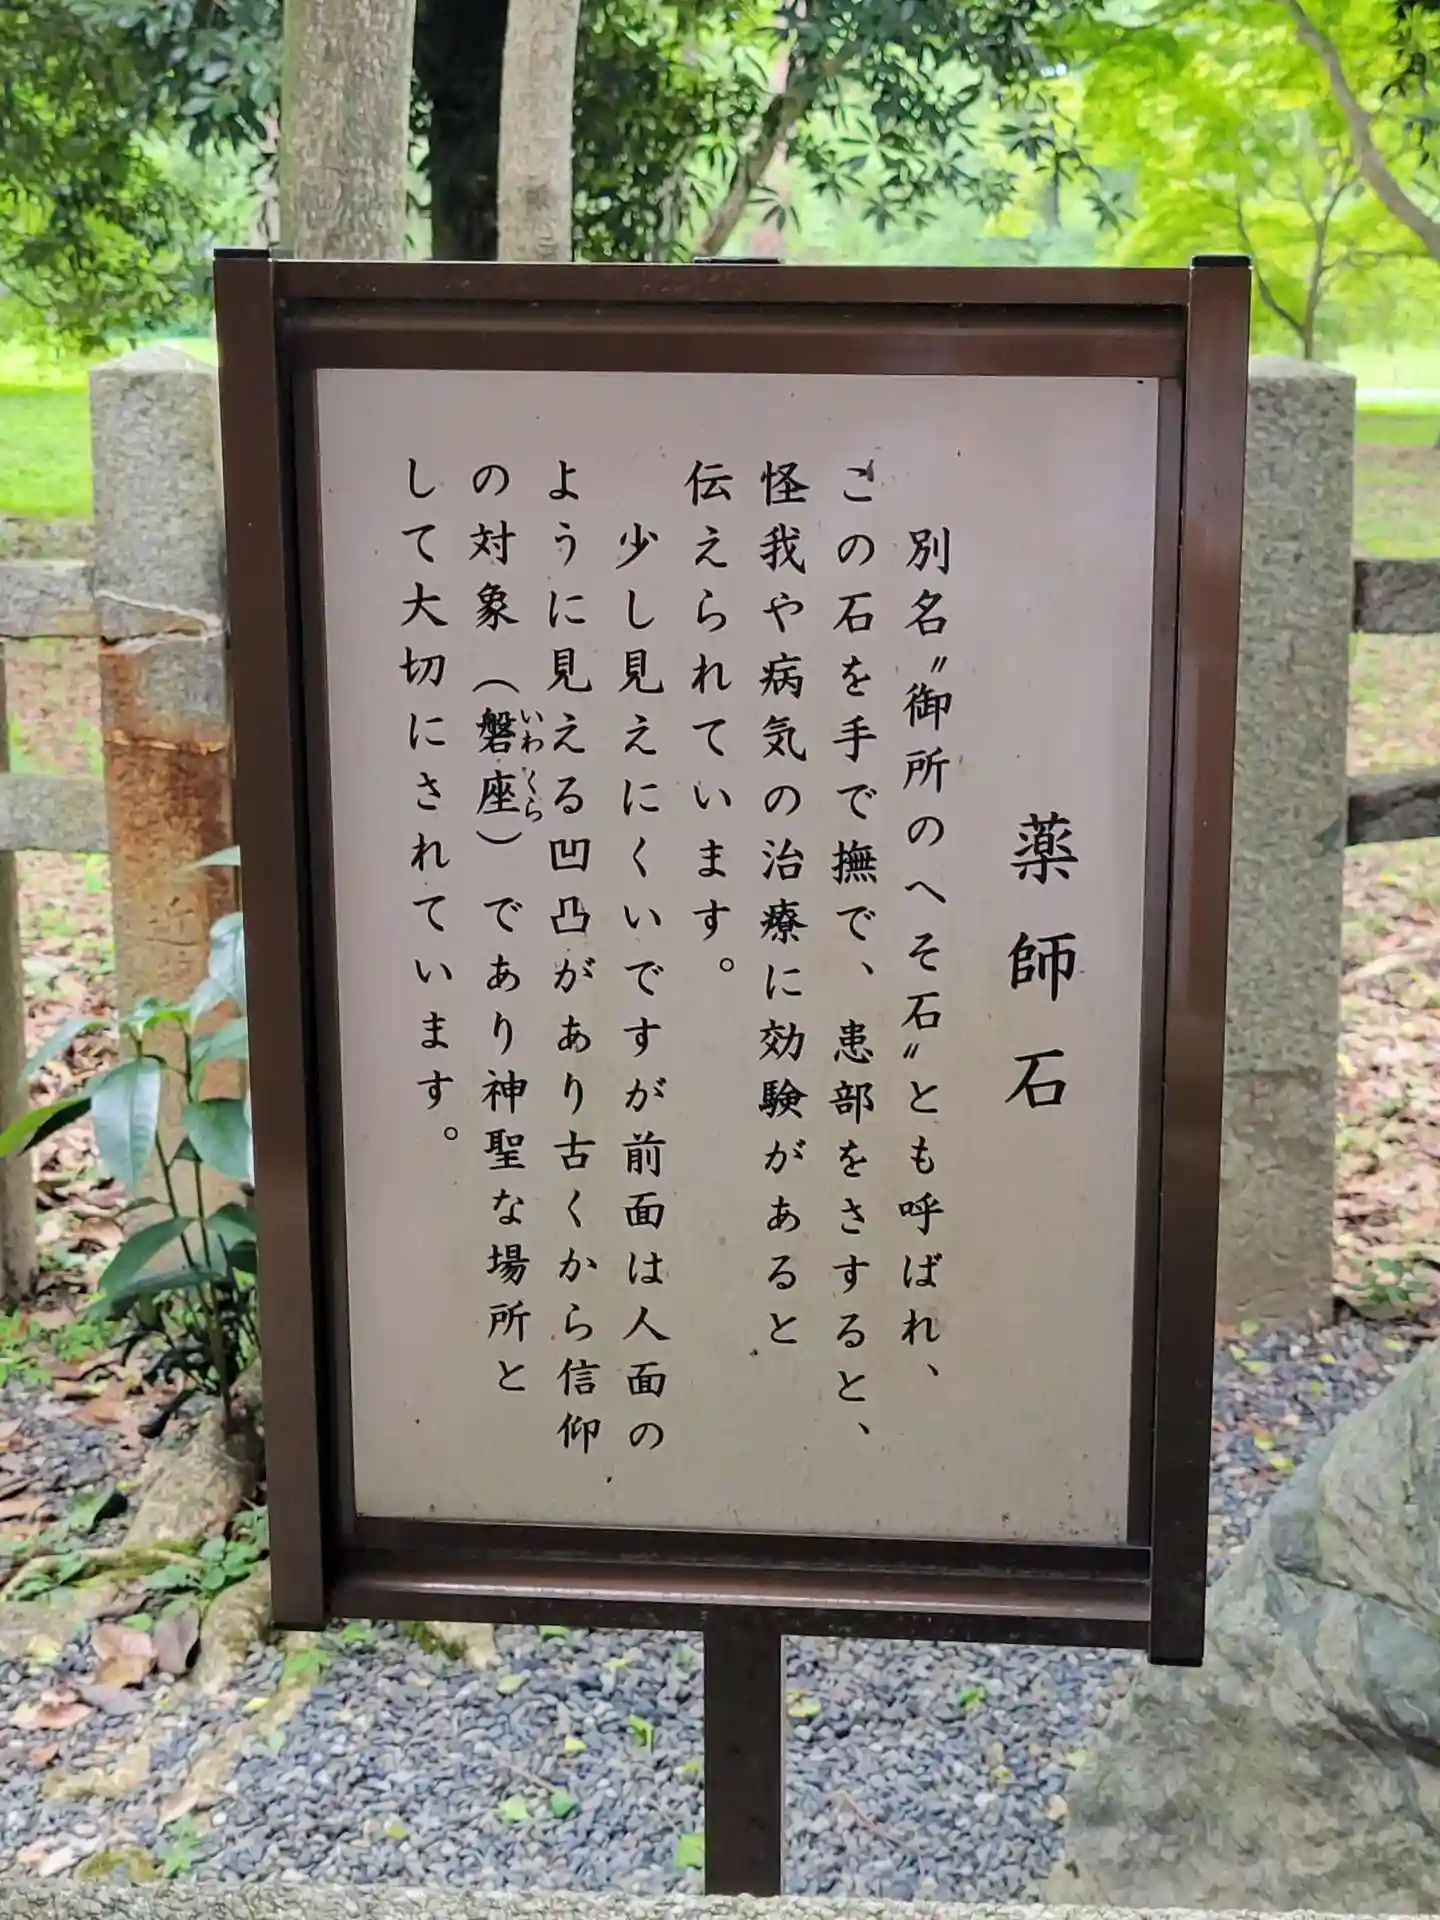 薬師石
別名〝御所のへそ石〟とも呼ばれ、
この石を手で撫で、患部をさすると、
怪我や病気の治療に効験があると
伝えられています。
少し見えにくいですが前面は人面の
ように見える凹凸があり古くから信仰
の対象（磐座いわくら）であり神聖な場所と
して大切にされています。